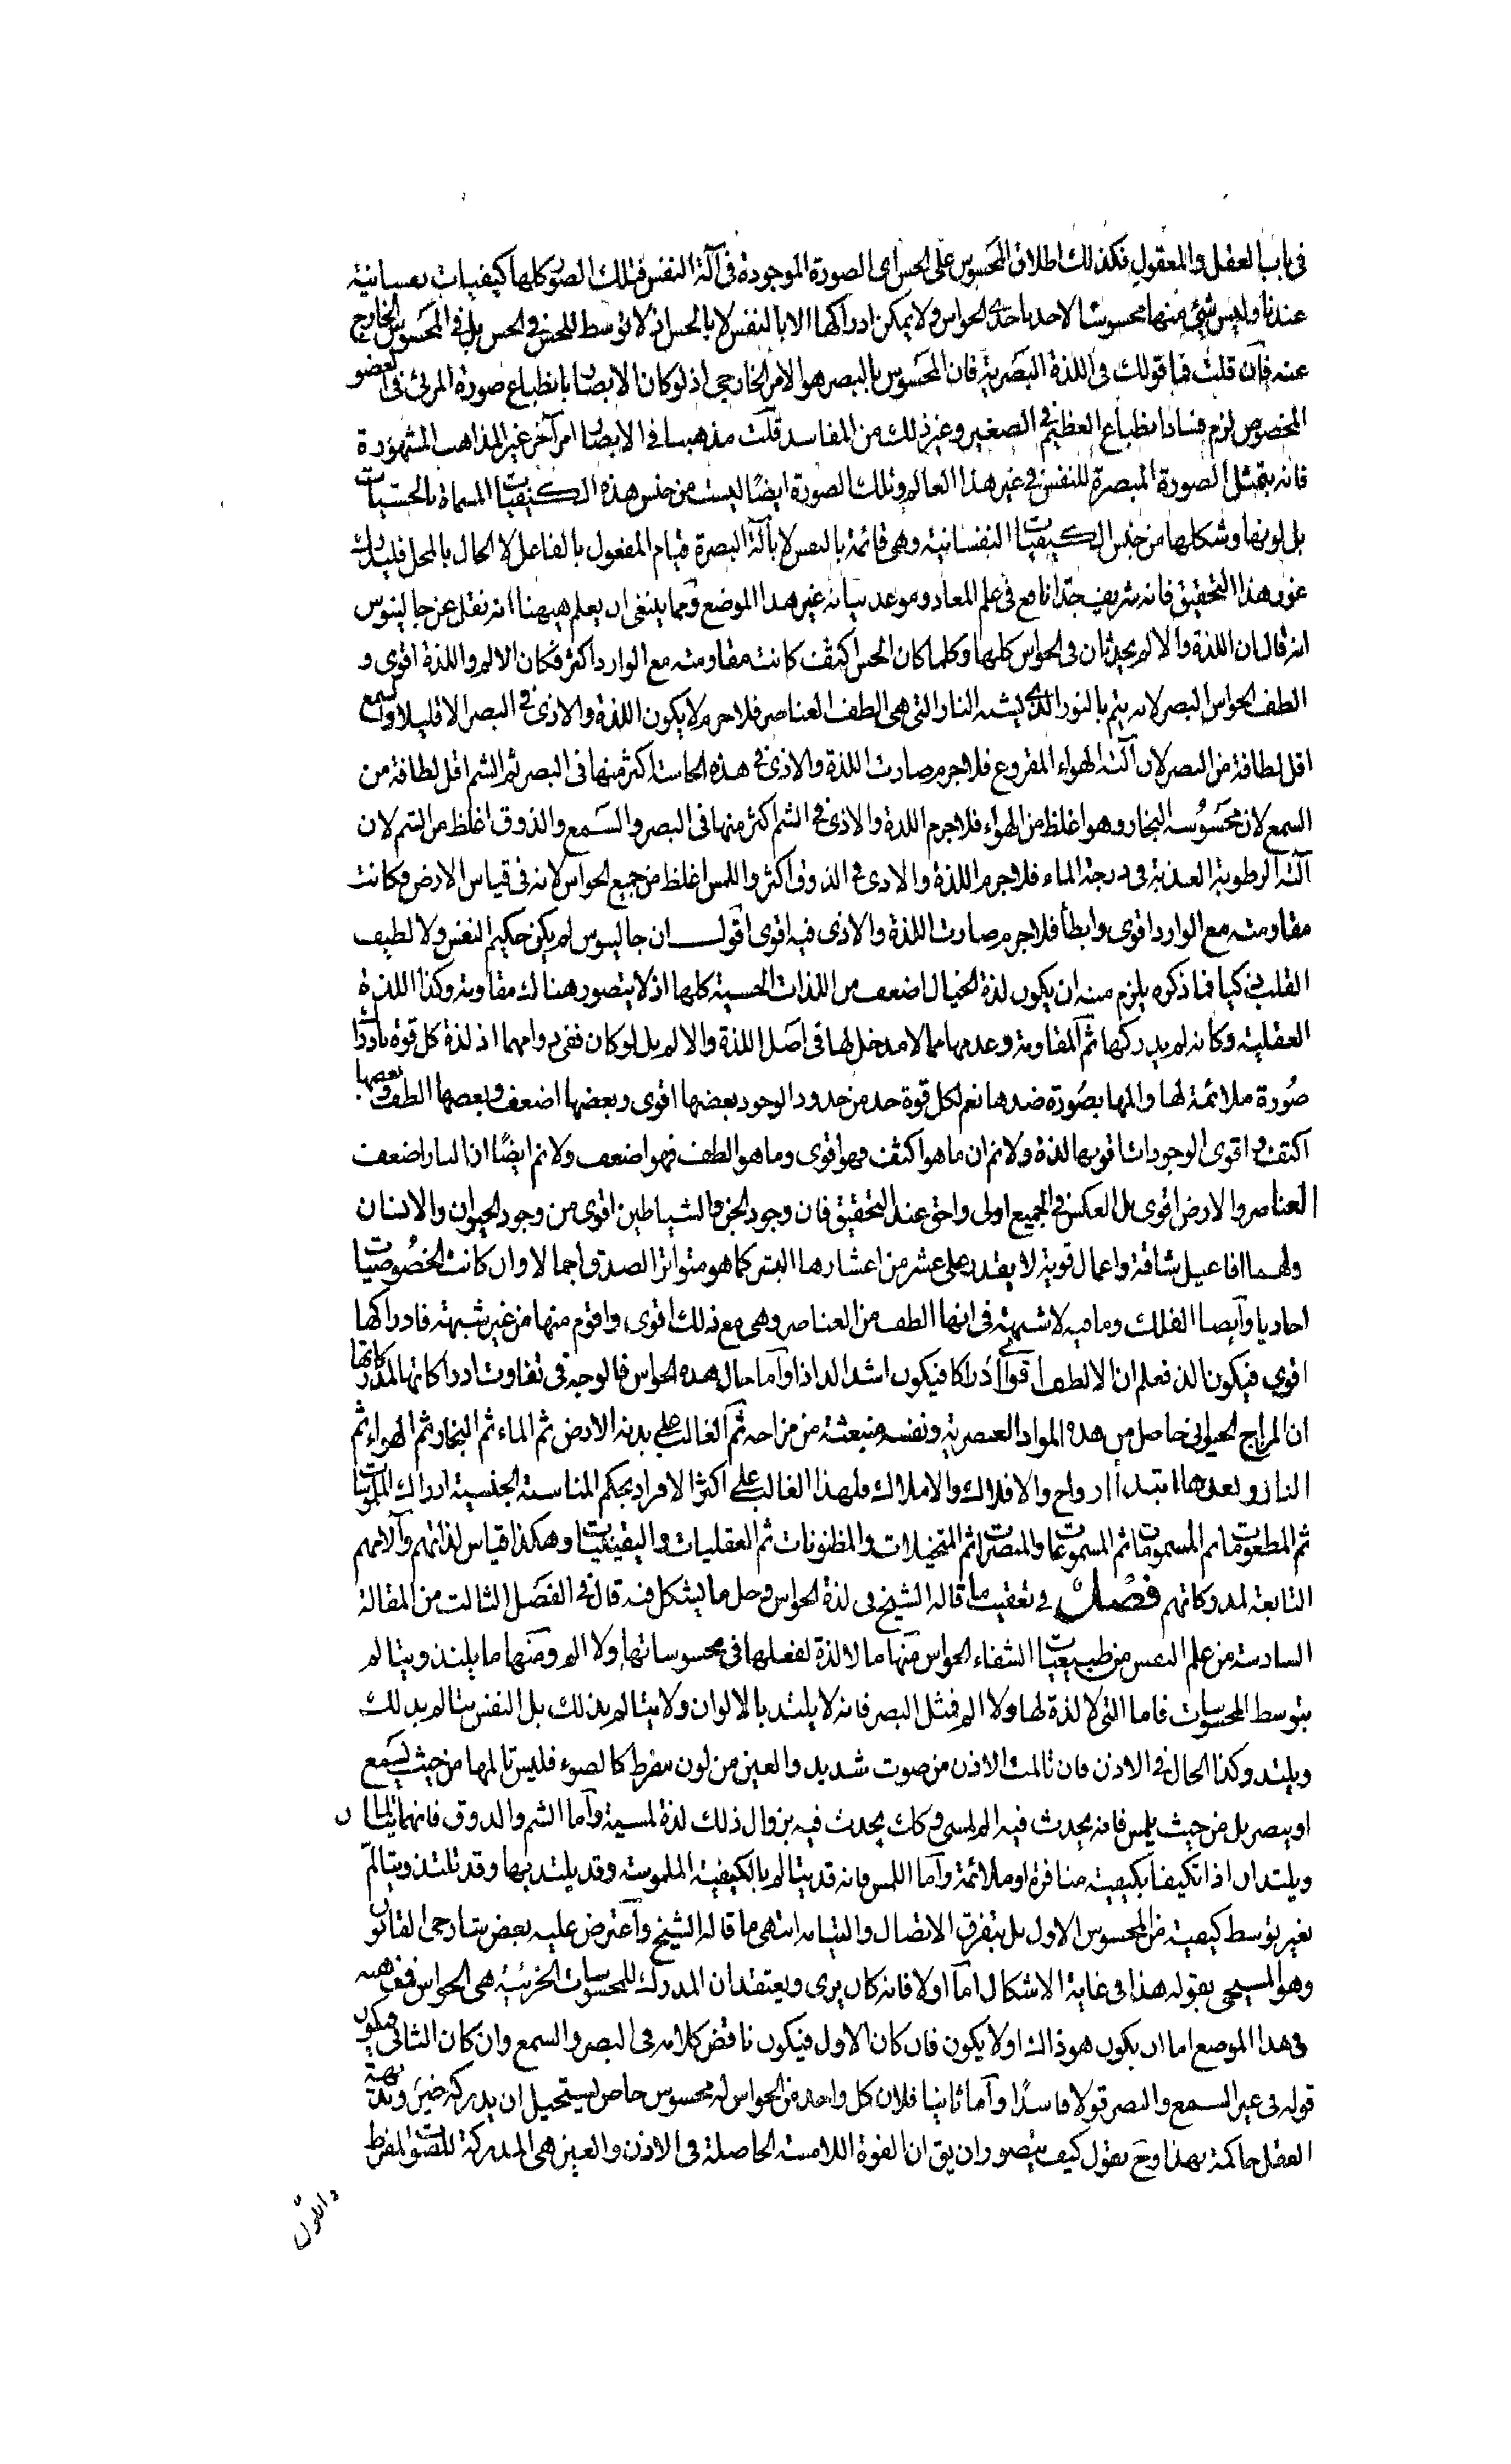 فى باب العقل والمعقول فكذلك اطلاق المحسوس على الحس اى الصورة الموجودة فى آلة النفس فتلك الصور كلها كيفيات نفسانية
عندنا وليس شئ منها محسوسا لاحد باحدى الحواس ولا يمكن ادراكها الا بالنفس لا بالحس اذ لا توسط للحس فى الحس بل فى المحسوس الخارج
عنه فان قلت فما قولك فى اللذة البصرية فان المحسوس بالبصر هو الامر الخارجى اذ لو كان الابصار بانطباع صورة المرئى فى العضو
المخصوص لزم فساد انطباع العظيم فى الصغير وغير ذلك من المفاسد قلت مذهبنا فى الابصار امر آخر غير المذاهب المشهورة
فانه يتمثل الصورة المبصرة للنفس فى غير هذا العالم وتلك الصورة ايضا ليست من جنس هذه الكيفيات المسماة بالحسيات
بل لونها وشكلها من جنس الكيفيات النفسانية وهى قائمة بالنفس لا بآلة البصرة قيام المفعول بالفاعل لا الحال بالمحل فليدرك
غور هذا التحقيق فانه شريف جدا نافع فى علم المعاد وموعد بيانه غير هذا الموضع ومما ينبغى ان يعلم هيهنا انه نقل عن جالينوس
انه قال ان اللذة والالم يحدثان فى الحواس كلها وكلما كان الحس اكثف كانت مقاومته مع الوارد اكثر فكان الالم واللذة اقوى و
الطف الحواس البصر لانه يتم بالنور الذى يشبه النار التى هى الطف العناصر فلا جرم لا يكون اللذة والاذى فى البصر الا قليلا والسمع
اقل لطافة من البصر لان آلته الهواء المقروع فلا جرم صارت اللذة والاذى فى هذه الحاسة اكثر منها فى البصر ثم الشم اقل لطافة من
السمع لان محسوسه البخار وهو اغلظ من الهواء فلا جرم اللذة والاذى فى الشم اكثر منها فى البصر والسمع والذوق اغلظ من الشم لان
آلته الرطوبة العذبة فى درجة الماء فلا جرم اللذة والاذى فى الذوق اكثر واللمس اغلظ من جميع الحواس لانه فى قياس الارض فكانت
مقاومته مع الوارد اقوى وابطأ فلا جرم صارت اللذة والاذى فيه اقوى اقول ان جالينوس لم يكن حكيم النفس ولا لطيف
القلب ذكيا فما ذكره يلزم منه ان يكون لذة الخيال اضعف من اللذات الحسية كلها اذ لا يتصور هناك مقاومة وكذا اللذة
العقلية وكانه لم يدركها ثم المقاومة وعدمها مما لا مدخل لها فى اصل اللذة والالم بل لو كان ففى دوامهما اذ لذة كل قوة بادراك
صورة ملائمة لها والمها بصورة ضدها نعم لكل قوة حد من حدود الوجود بعضها اقوى وبعضها اضعف وبعضها الطف وبعضها
اكثف و اقوى الوجودات اقويها لذة ولا نم ان ما هو اكثف فهو اقوى وما هو الطف فهو اضعف ولا نم ايضا ان النار اضعف
العناصر والارض اقوى بل العكس فى الجميع اولى واحق عند التحقيق فان وجود الجن والشياطين اقوى من وجود الحيوان والانسان
ولهما افاعيل شاقة واعمال قوية لا يقدر على عشر من اعشارها البشر كما هو متواتر الصدق اجمالا وان كانت الخصوصيات
احاديا وايضا الفلك وما فيه لا شبهة فى انها الطف من العناصر وهى مع ذلك اقوى واقوم منها من غير شبهة فادراكها
اقوى فيكون الذ فعلم ان الالطف اقوى ادراكا فيكون اشد الذاذا واما حال هذه الحواس فالوجه فى تفاوت ادراكاتها لمدركاتها
ان المزاج الحيوانى حاصل من هذه المواد العنصرية ونفسه منبعثة من مزاحه ثم الغالب على بدنه الارض ثم الماء ثم البخار ثم الهواء ثم
النار وبعدها ابتداء ارواح والافلاك والاملاك فلهذا الغالب على اكثر الافراد بحكم المناسبة الجنسية ادراك الملموسات
ثم المطعومات ثم المشمومات ثم المسموعات والمبصرات ثم المتخيلات والمظنونات ثم العقليات واليقينيات وهكذا قياس لذاتهم وآلامهم
التابعة لمدركاتهم فصل فى تعقيب ما قاله الشيخ فى لذة الحواس وحل ما يشكل فيه قال فى الفصل الثالث من المقالة
السادسة من علم النفس من طبيعيات الشفاء الحواس منها ما لا لذة لفعلها فى محسوساتها ولا الم ومنها ما يلتذ ويتالم
بتوسط المحسوسات فاما التى لا لذة لها ولا الم فمثل البصر فانه لا يلتذ بالالوان ولا يتالم بذلك بل النفس يتالم بذلك
ويلتذ وكذا الحال فى الاذن فان تالمت الاذن من صوت شديد والعين من لون مفرط كالضوء فليس تالمها من حيث يسمع
او يبصر بل من حيث يلمس فانه يحدث فيه الم لمسى وكك يحدث فيه بزوال ذلك لذة لمسية واما الشم والذوق فانهما يتالمان
ويلتذان اذا تكيفا بكيفية منافرة او ملائمة واما اللمس فانه قد يتالم بالكيفية الملموسة وقد يلتذ بها وقد تلتذ ويتالم
بغير توسط كيفية من المحسوس الاول بل بتفرق الاتصال والتيامه انتهى ما قاله الشيخ واعترض عليه بعض شارحى القانون
وهو المسيحى بقوله هذا فى غاية الاشكال اما اولا فانه كان يرى ويعتقد ان المدرك للمحسوسات الجزئية هى الحواس فمذهبه
فى هذا الموضع اما ان يكون هو ذاك او لا يكون فان كان الاول فيكون ناقض كلامه فى البصر والسمع وان كان الثانى فيكون
قوله فى غير السمع والبصر قولا فاسدا واما ثانيا فلان كل واحد من الحواس له محسوس خاص يستحيل ان يدركه غيره وبديهة
العقل حاكمة بهذا وح نقول كيف يتصور ان يق ان القوة اللامسة الحاصلة فى الاذن والعين هى المدركة للصوت المفرط
واللون